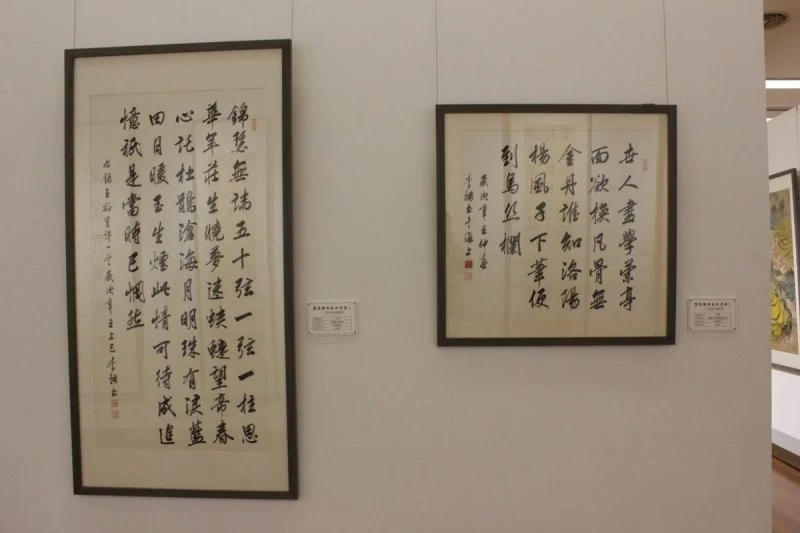 錦瑟無端五十弦一弦一柱思
華年莊生曉夢迷蛺蝶望帝春
心託杜鵑滄海月明珠有淚藍
田日暖玉生煙此情可待成追
憶祇是當時已惘然
右錄玉谿生詩一章歲次辛丑上巳李書
世人盡學蘭亭
面欲換凡骨無
金丹誰知洛陽
楊風子下筆便
到烏絲欄
歲次辛丑仲春
李書于海上